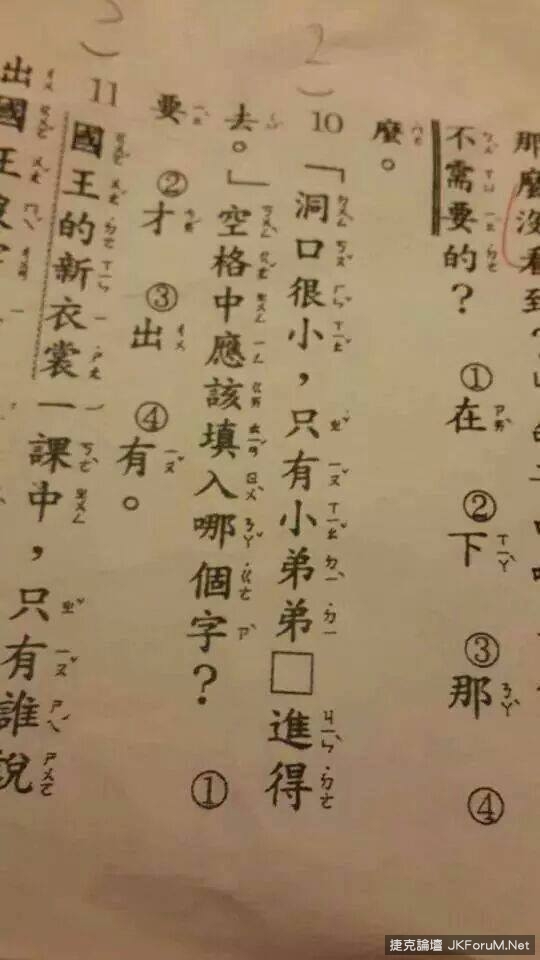 那麼沒看到
不需要的？ ①在 ②下 ③那 ④
麼。
2 ）10 「洞口很小，只有小弟弟□進得
去。」空格中應該填入哪個字？ ①
要 ②才 ③出 ④有。
2 ）11 國王的新衣裳一課中，只有誰說
出國王
捷克論壇 JKForuM.Net